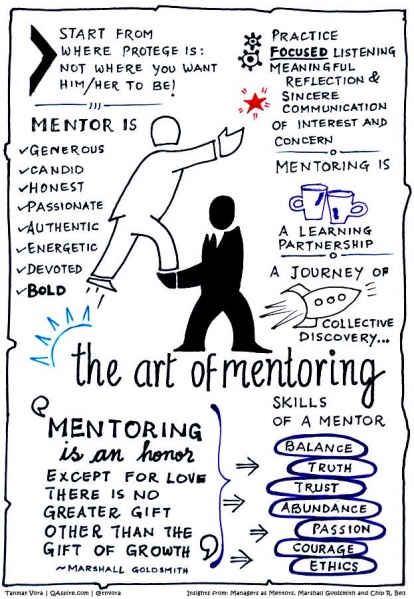 START FROM
WHERE PROTEGE IS:
NOT WHERE YOU WANT
HIM/HER TO BE!
PRACTICE
FOCUSED LISTENING
MEANINGFUL
REFLECTION &
SINCERE
COMMUNICATION
OF INTEREST AND
CONCERN
MENTOR IS
✓GENEROUS
✓CANDID
✓HONEST
✓PASSIONATE
✓AUTHENTIC
✓ENERGETIC
✓DEVOTED
✓BOLD
MENTORING IS
A LEARNING
PARTNERSHIP
A JOURNEY OF
COLLECTIVE
DISCOVERY...
the art of mentoring
"MENTORING
is an honor
EXCEPT FOR LOVE
THERE IS NO
GREATER GIFT
OTHER THAN THE
GIFT OF GROWTH"
~MARSHALL GOLDSMITH
SKILLS
OF A MENTOR
BALANCE
TRUTH
TRUST
ABUNDANCE
PASSION
COURAGE
ETHICS
Tanmay Vora | QAspire.com | @tnvora
Insights from: Managers as Mentors, Marshall Goldsmith and Chip R. Bell